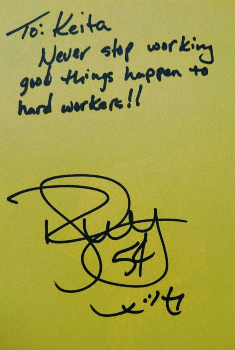 To: Keita
Never stop working
good things happen to
hard workers!!
54